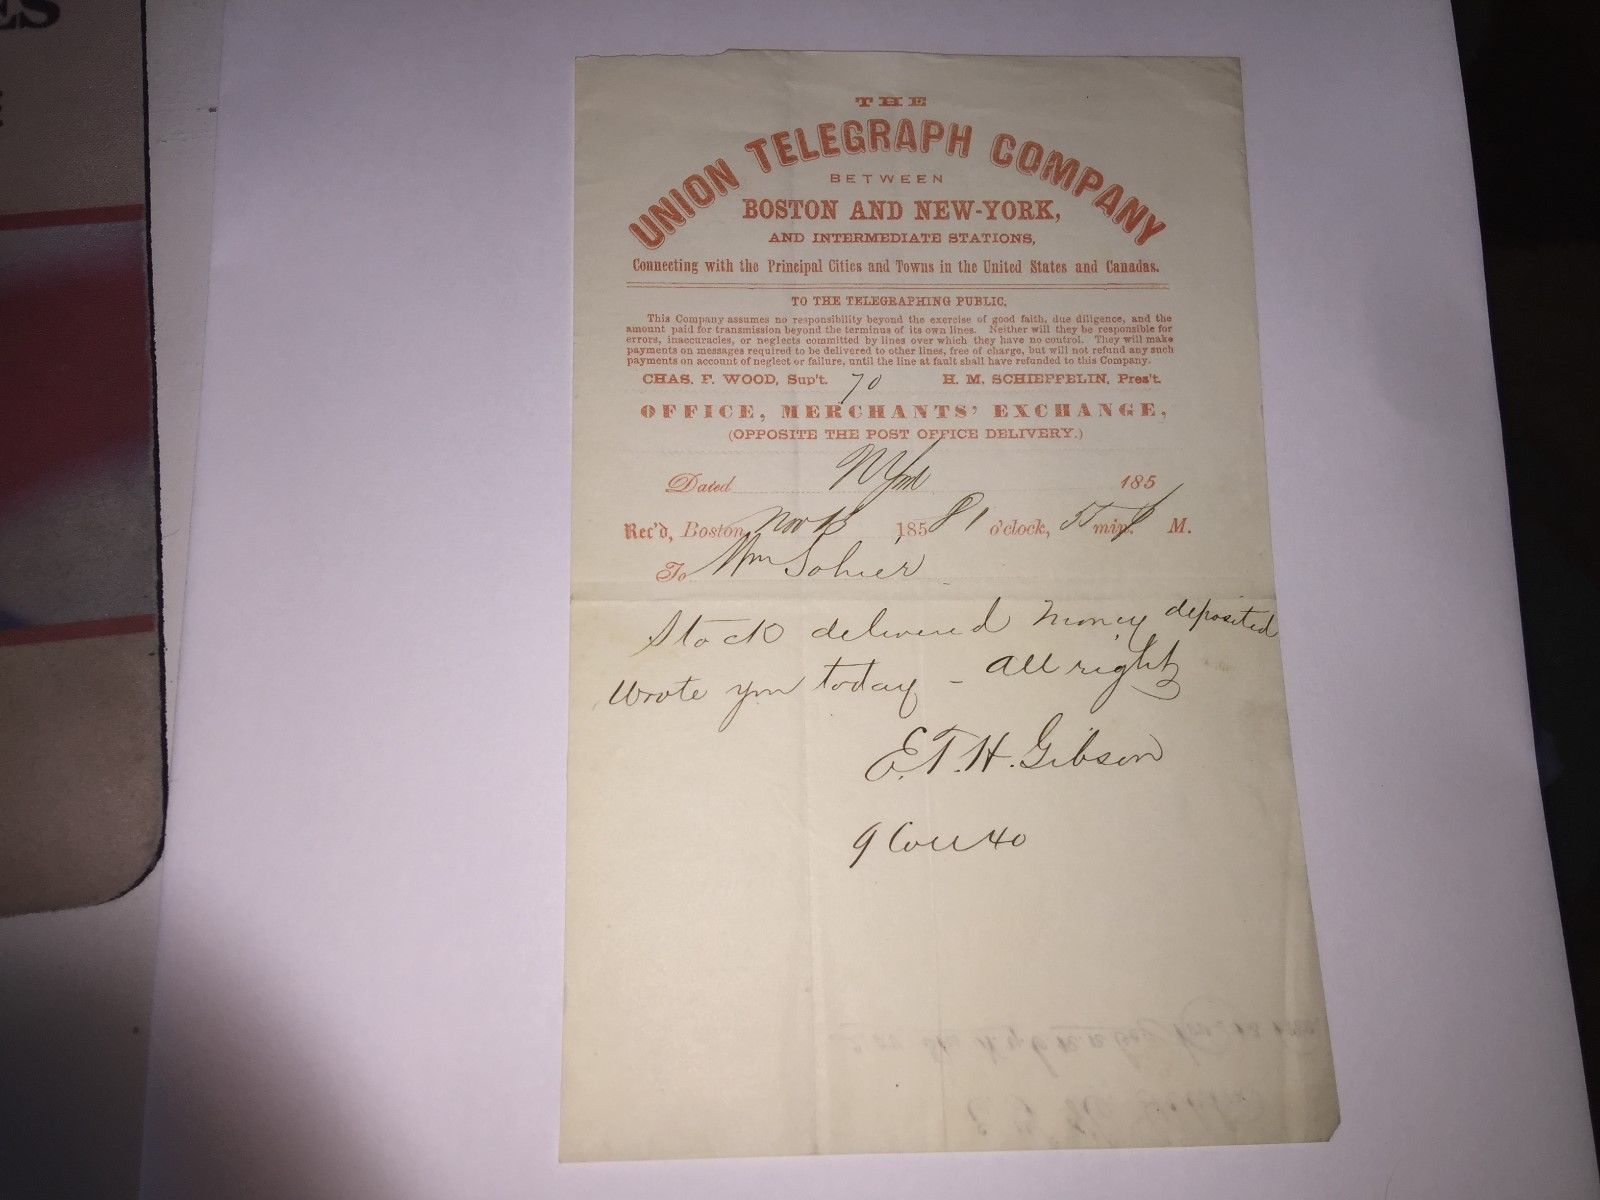 ES
E
THE
UNION TELEGRAPH COMPANY
BETWEEN
BOSTON AND NEW-YORK,
AND INTERMEDIATE STATIONS,
Connecting with the Principal Cities and Towns in the United States and Canadas.
TO THE TELEGRAPHING PUBLIC.
This Company assumes no responsibility beyond the exercise of good faith, due diligence, and the
amount paid for transmission beyond the terminus of its own lines. Neither will they be responsible for
errors, inaccuracies, or neglects committed by lines over which they have no control. They will make
payments on messages required to be delivered to other lines, free of charge, but will not refund any such
payments on account of neglect or failure, until the line at fault shall have refunded to this Company.
CHAS. F. WOOD, Sup't. 70 H. M. SCHIEFFELIN, Pres't.
OFFICE, MERCHANTS' EXCHANGE,
(OPPOSITE THE POST OFFICE DELIVERY.)
Dated 185
Rec'd, Boston, Nov 13 1858 1 o'clock, 55 min. P M.
To Wm Sohier
Stock delivered money deposited
wrote you today - All right
E.T.H. Gibson
40